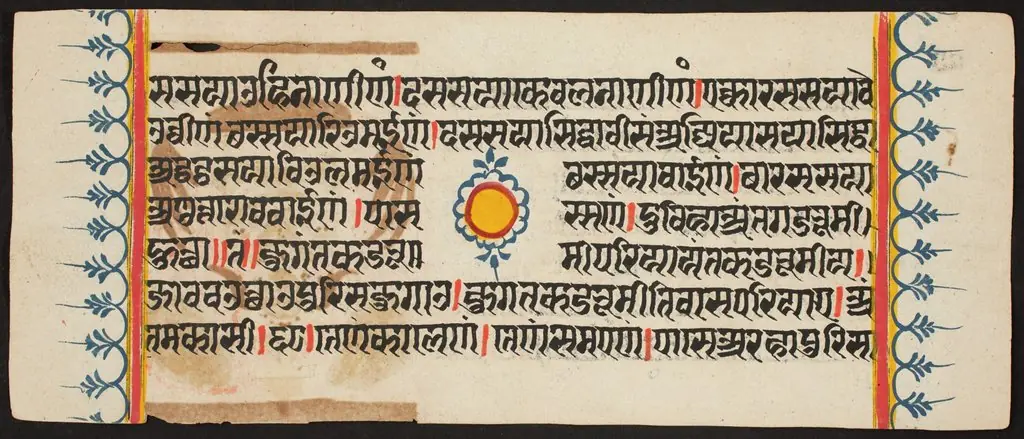 ससया उहिनाणीणं। दससया केवलनाणीणं। एक्कारससया वे
उव्वीणं छस्सया रिउमईणं। दससया सिद्धा वीसं अज्जियासया सिद्धा
अद्धट्ठसया विउलमईणं छस्सया वाईणं। बारससया
अणुत्तरोववाईणं। पास स्सणं। दुविहा अंतगडभूमी।
हुत्था॥ तं॥ जुगंतकडभू मी परियायंतकडभूमीय।।
जाव चउत्थाउ पुरिसजुगाउ। जुगंतकडभूमी तिवासपरियाए। अं
तमकासी। तेणं कालेणं। तेणं समएणं। पासे अरहा पुरिसा